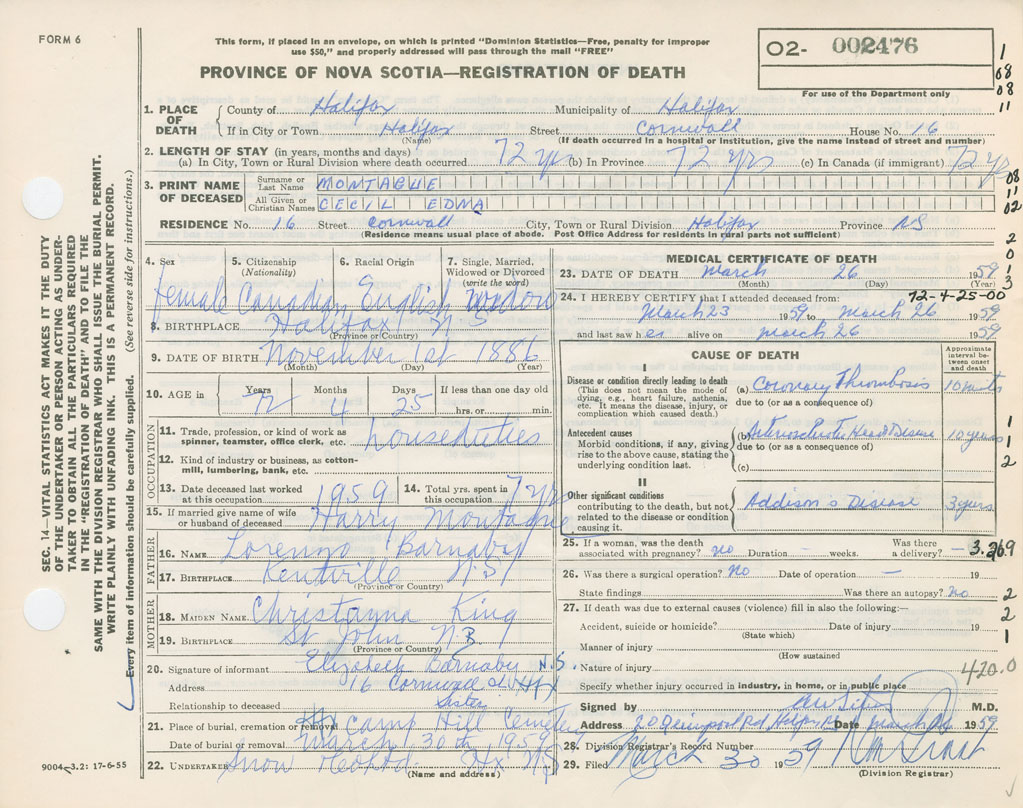 FORM 6
This form, if placed in an envelope, on which is printed "Dominion Statistics—Free, penalty for improper
use $50," and properly addressed will pass through the mail "FREE"
PROVINCE OF NOVA SCOTIA—REGISTRATION OF DEATH
02- 002476
For use of the Department only
1
08
08
11
1. PLACE OF DEATH
County of Halifax Municipality of Halifax
If in City or Town Halifax Street Cornwall House No. 16
(Name) (If death occurred in a hospital or institution, give the name instead of street and number)
2. LENGTH OF STAY (in years, months and days)
(a) In City, Town or Rural Division where death occurred 72 yr (b) In Province 72 yrs (c) In Canada (if immigrant) 72 yr
3. PRINT NAME OF DECEASED
Surname or Last Name MONTAGUE
All Given or Christian Names CECIL EDNA
08
11
02
RESIDENCE No. 16 Street Cornwall City, Town or Rural Division Halifax Province NS
(Residence means usual place of abode. Post Office Address for residents in rural parts not sufficient)
4. Sex 5. Citizenship (Nationality) 6. Racial Origin 7. Single, Married, Widowed or Divorced (write the word)
female Canadian English widow
8. BIRTHPLACE Halifax N S
(Province or Country)
9. DATE OF BIRTH November 1st 1886
(Month) (Day) (Year)
10. AGE in Years Months Days If less than one day old
72 4 25 hrs. or min.
OCCUPATION
11. Trade, profession, or kind of work as spinner, teamster, office clerk, etc. houseduties
12. Kind of industry or business, as cotton-mill, lumbering, bank, etc.
13. Date deceased last worked at this occupation 1959 14. Total yrs. spent in this occupation 7 yrs
15. If married give name of wife or husband of deceased Harry Montague
FATHER
16. NAME Lorenzo Barnaby
17. BIRTHPLACE Kentville N.S
(Province or Country)
MOTHER
18. MAIDEN NAME Christanna King
19. BIRTHPLACE St John N.B
(Province or Country)
20. Signature of informant Elizabeth Barnaby
Address 16 Cornwall St Hfx N.S.
Relationship to deceased Sister
21. Place of burial, cremation or removal Camp Hill Cemetery
Date of burial or removal March 30th 1959
22. UNDERTAKER Snow Hfx NS
(Name and address)
9004-3.2: 17-6-55
MEDICAL CERTIFICATE OF DEATH
23. DATE OF DEATH March 26 1959
(Month) (Day) (Year)
24. I HEREBY CERTIFY that I attended deceased from: 72-4-25-00
March 23 1959 to March 26 1959
and last saw her alive on March 26 1959
2
0
1
0
3
CAUSE OF DEATH
Approximate interval between onset and death
I
Disease or condition directly leading to death
(This does not mean the mode of dying, e.g., heart failure, asthenia, etc. It means the disease, injury, or complication which caused death.)
(a) Coronary Thrombosis 10 mnts
due to (or as a consequence of)
Antecedent causes
Morbid conditions, if any, giving rise to the above cause, stating the underlying condition last.
(b) Heart Disease 10 years
due to (or as a consequence of)
(c)
II
Other significant conditions
contributing to the death, but not related to the disease or condition causing it.
Addison's Disease 3 years
1
1
1
2
25. If a woman, was the death associated with pregnancy? no Duration — weeks. Was there a delivery? —
3.269
26. Was there a surgical operation? No Date of operation — 19
State findings Was there an autopsy? No
2
27. If death was due to external causes (violence) fill in also the following:—
Accident, suicide or homicide? Date of injury 19
(State which)
2
Manner of injury
(How sustained
1
Nature of injury
420.0
Specify whether injury occurred in industry, in home, or in public place
Signed by M.D.
Address Rd Date March 1959
28. Division Registrar's Record Number
29. Filed March 30 1959
(Division Registrar)
SEC. 14—VITAL STATISTICS ACT MAKES IT THE DUTY
OF THE UNDERTAKER OR PERSON ACTING AS UNDER-
TAKER TO OBTAIN ALL THE PARTICULARS REQUIRED
IN THE "REGISTRATION OF DEATH" AND TO FILE THE
SAME WITH THE DIVISION REGISTRAR WHO SHALL ISSUE THE BURIAL PERMIT.
WRITE PLAINLY WITH UNFADING INK. THIS IS A PERMANENT RECORD.
Every item of information should be carefully supplied. (See reverse side for instructions.)